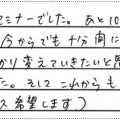 セミナーでした。あと10
今からでも十分間に
かり変えていきたいと思
た。そして これからも
ス希望します）